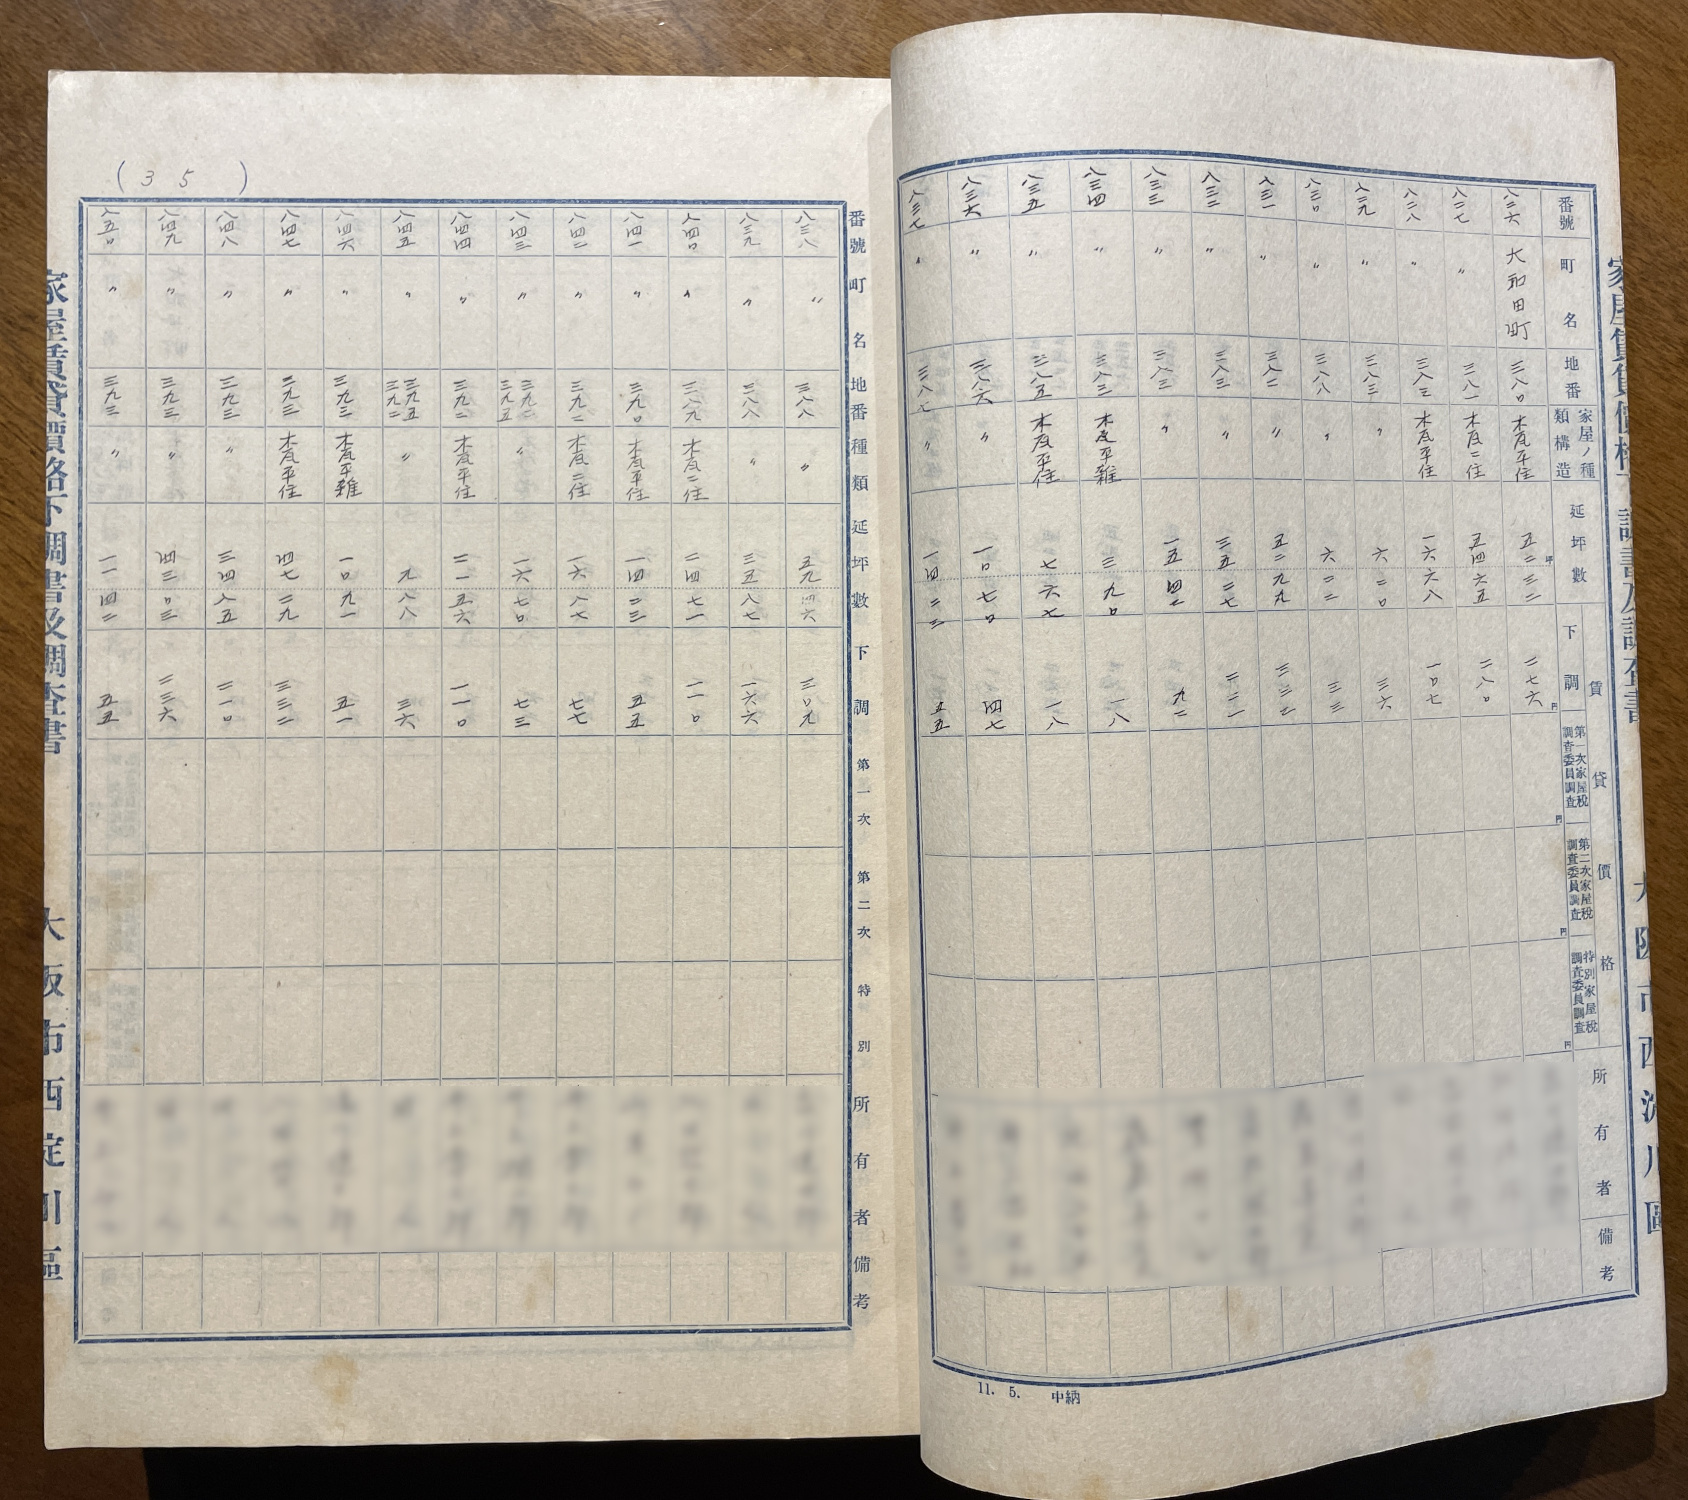 番號
町名
地番
家屋ノ種類構造
延坪數
賃貸價格
下調
第一次家屋稅調査委員調査
第二次家屋稅調査委員調査
特別家屋稅調査委員調査
所有者
備考
坪
円
円
円
円
八二六 大和田町 三八〇 木瓦平住 五二三二 二七六
八二七 〃 三八一 木瓦二住 五四六五 二八〇
八二八 〃 三八三 木瓦平住 一六六八 一〇七
八二九 〃 三八三 〃 六二〇 三六
八三〇 〃 三八八 〃 六二二 三三
八三一 〃 三八二 〃 五二九九 三三三
八三二 〃 三八三 〃 三五二七 二三一
八三三 〃 三八三 〃 一五四二 九二
八三四 〃 三八三 木瓦平雜 三九〇 一八
八三五 〃 三八五 木瓦平住 七六七 一八
八三六 〃 三八六 〃 一〇七〇 四七
八三七 〃 三八七 〃 一四二三 五五
11. 5. 中納
番號
町名
地番
種類
延坪數
下調
第一次
第二次
特別
所有者
備考
八三八 〃 三八八 〃 五九四六 三〇九
八三九 〃 三八八 〃 三五八七 一六六
八四〇 〃 三八九 木瓦二住 二四七一 一一〇
八四一 〃 三九〇 木瓦平住 一四二三 五五
八四二 〃 三九二 木瓦二住 一六八七 七七
八四三 〃 三九二 三九五 〃 一六七〇 七三
八四四 〃 三九二 木瓦平住 二一五六 一一〇
八四五 〃 三九五 三九二 〃 九八八 三六
八四六 〃 三九三 木瓦平雜 一〇九一 五一
八四七 〃 三九三 木瓦平住 四七二九 三三二
八四八 〃 三九三 〃 三四八五 二一〇
八四九 〃 三九三 〃 四三〇三 二三六
八五〇 〃 三九三 〃 一一四二 五五
(35)
家屋賃貸價格下調書及調査書
大阪市西淀川區